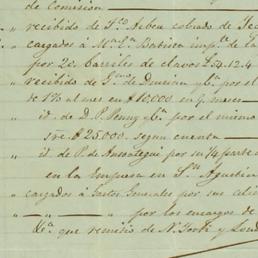 de Comision
" recibido de Fco. Hebeu cobrado de
" cargados á M. Ca. Batista impte. de la
por 20. barriles de clavos £54.12.4
" recibido de G.mo de Durian y Ca. por el
de 1% al mes en $10,000 en 4 meses
" id. de D. P. Penny y Ca. por el mismo
sre. $25.000. segun cuenta
" id. de P. de Aurrotegui por su 1/4 parte
en la Empresa en Sn. Agustin
" cargados á Gastos Generales por sus
" — " — " por los encargos de
Ca. que remitio de N. York y Lond